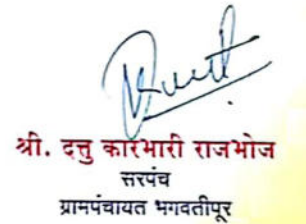 श्री. दत्तु कारभारी राजभोज
सरपंच
ग्रामपंचायत भगवतीपूर